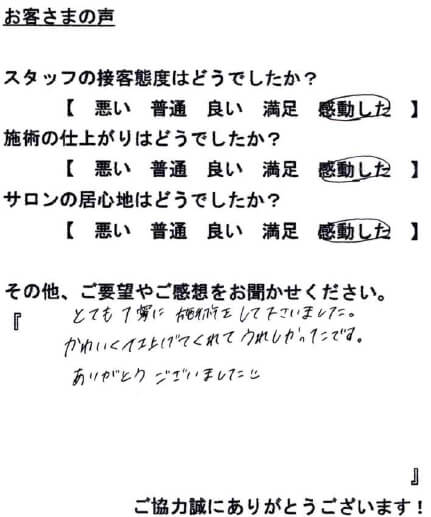 お客さまの声
スタッフの接客態度はどうでしたか？
【 悪い 普通 良い 満足 感動した 】
施術の仕上がりはどうでしたか？
【 悪い 普通 良い 満足 感動した 】
サロンの居心地はどうでしたか？
【 悪い 普通 良い 満足 感動した 】
その他、ご要望やご感想をお聞かせください。
『 とても丁寧に施術をして下さいました。
かわいく仕上げてくれてうれしかったです。
ありがとうございました
』
ご協力誠にありがとうございます！